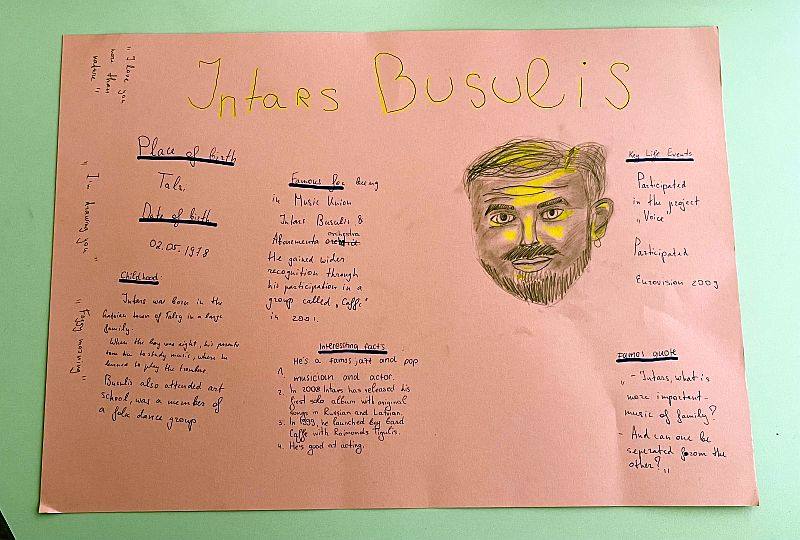 Intars Busulis
"I love you
more than
nature"
"I'm drawing you"
"Foggy morning"
Place of birth
Talsi,
Date of birth
02.05.1978
Childhood:
Intars was born in the
Latvian town of Talsy in a large
family.
When the boy was eight, his parents
took him to study music, where he
learned to play the trombone
Busulis also attended art
school, was a member of
a folk dance group
Famous for being
in Music Union
Intars Busulis &
Abonementa orchestra
He gained wider
recognition through
his participation in a
group called "Caffe"
in 2001.
Interesting facts
He's a famos jazz and pop
1. musician and actor.
2. In 2008 Intars has released his
first solo album with original
songs in Russian and Latvian.
3. In 1999, he launched Big Band
Caffe with Raimonds Tiguls.
4. He's good at acting.
Key Life Events
Participated
in the project
"Voice"
Participated
Eurovision 2009
Famos quote
"- Intars, what is
more important -
music of family?
- And can one be
seperated from the
other?"